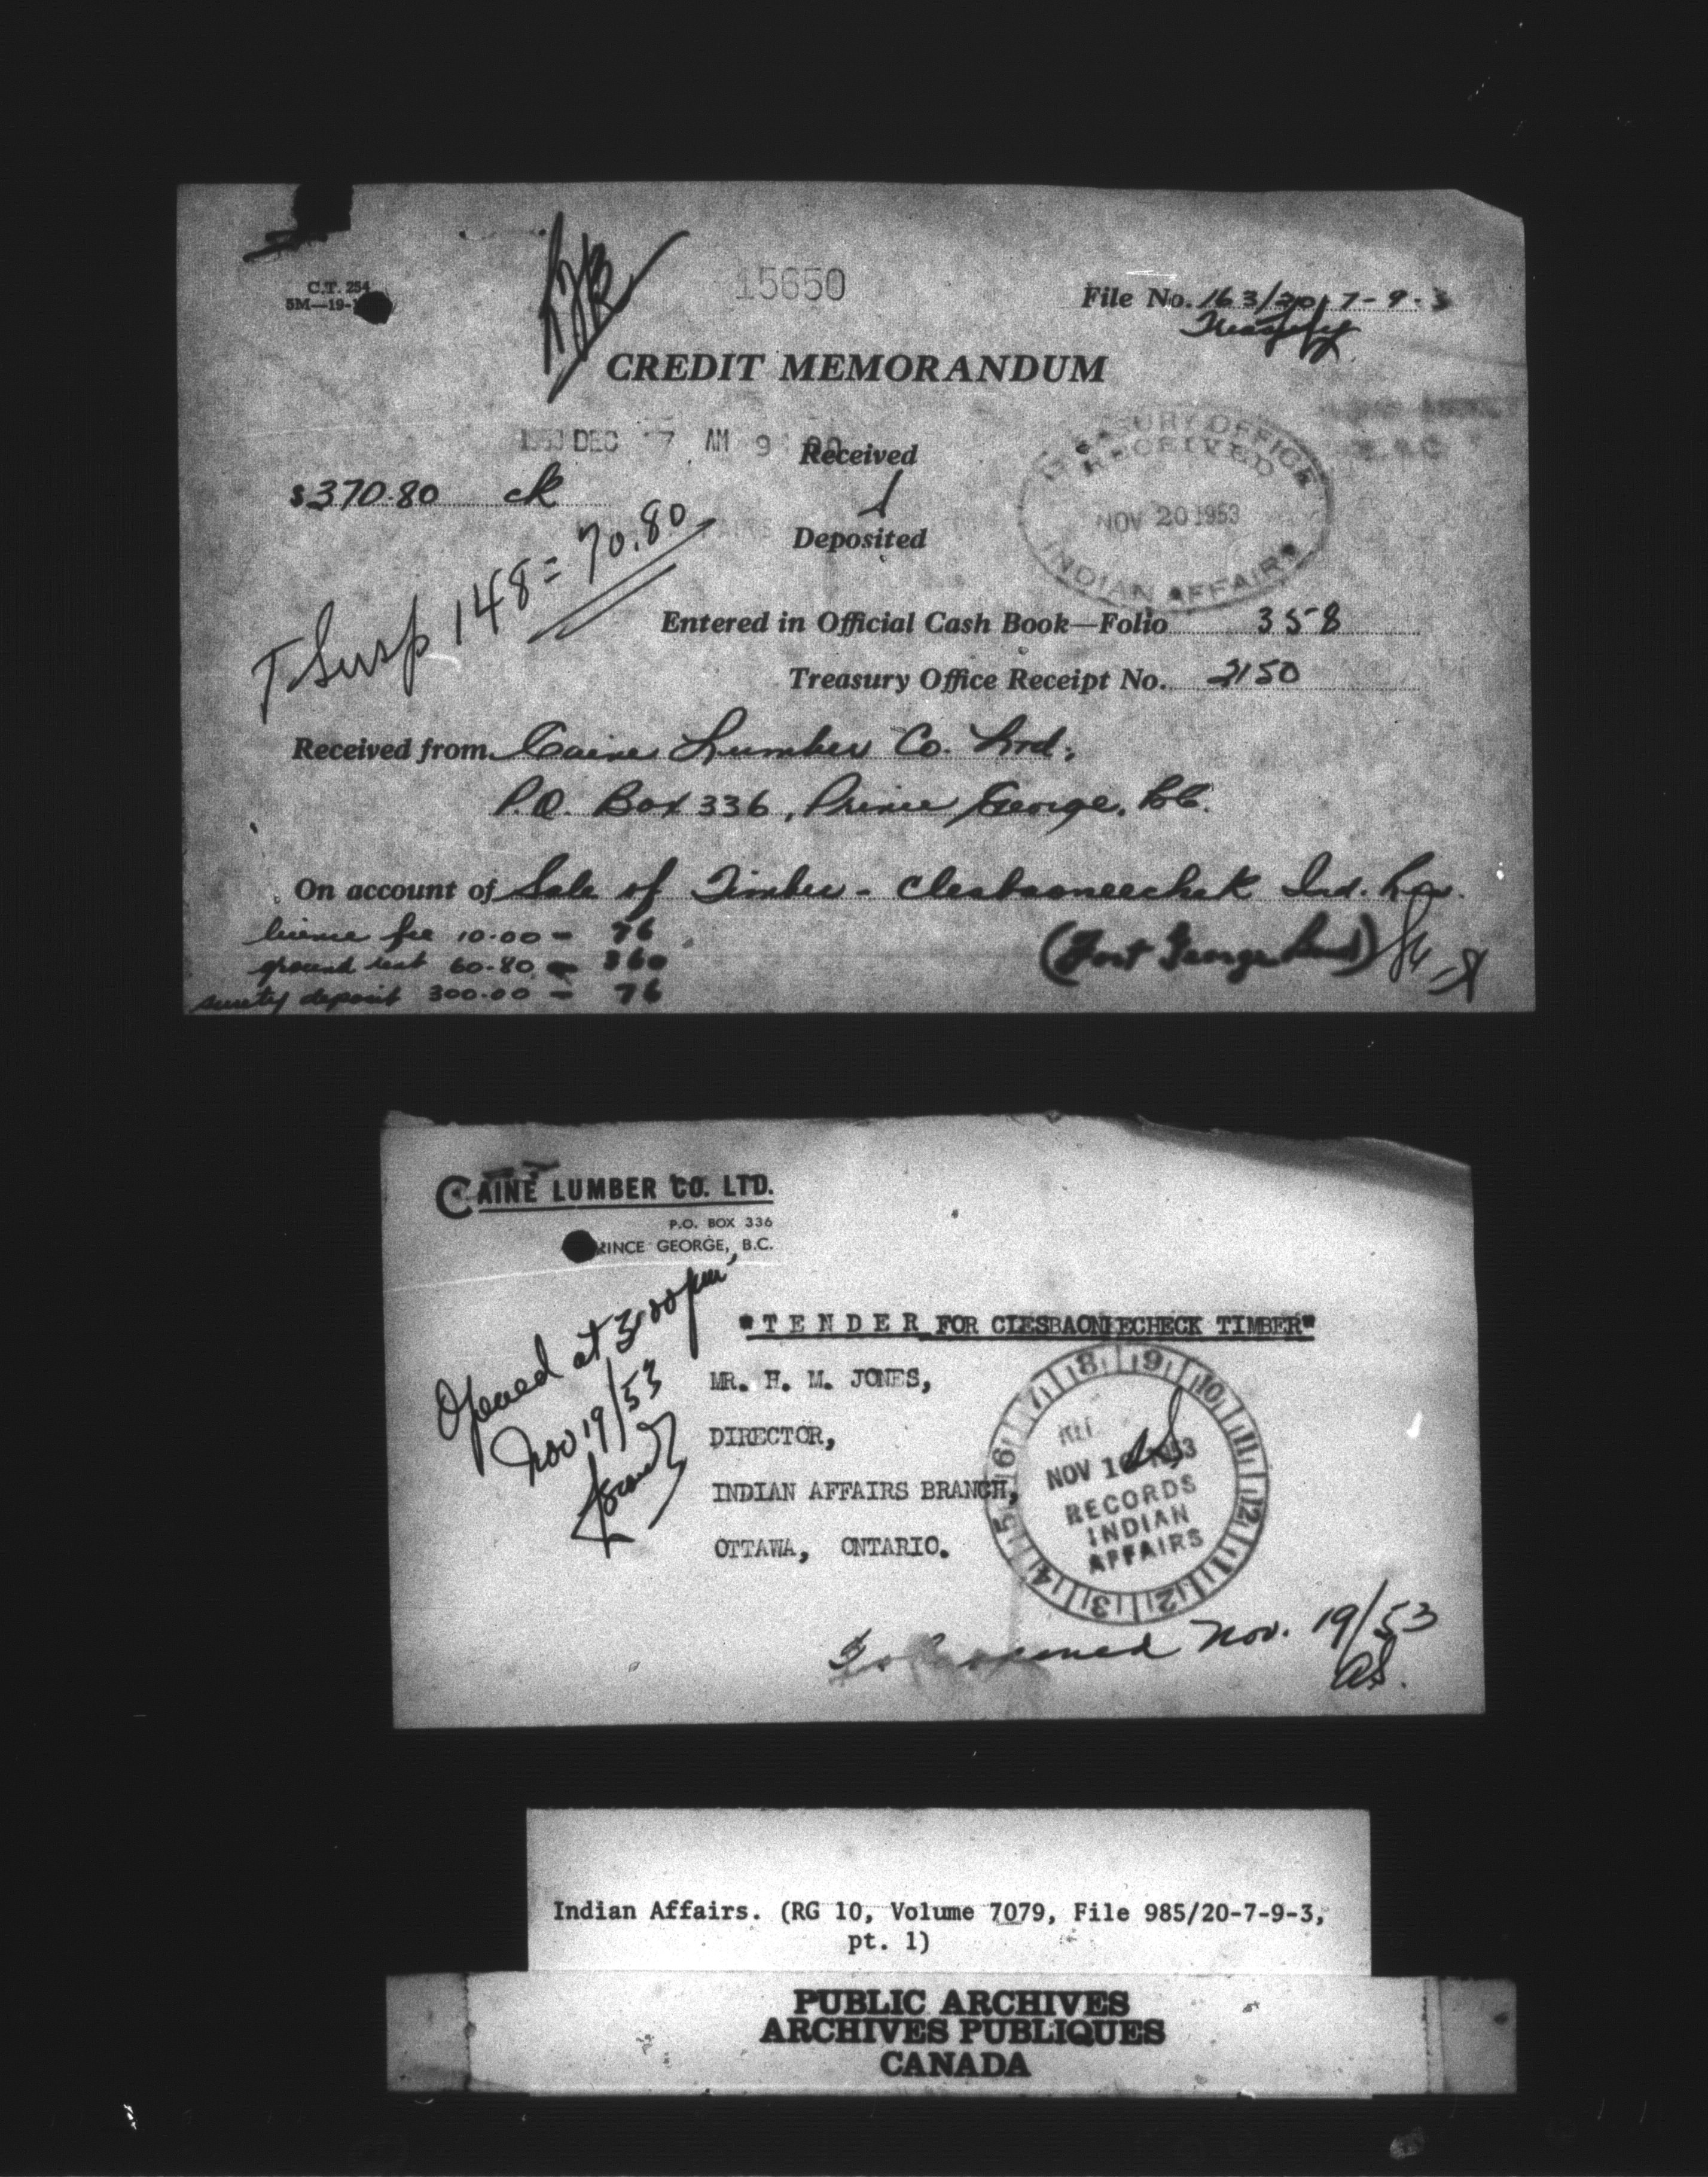 C.T. 254
5M—19-
15650
File No. 163/20-7-9-3
Treasury
CREDIT MEMORANDUM
1953 DEC 7 AM 9
Received
TREASURY OFFICE
RECEIVED
NOV 20 1953
INDIAN AFFAIRS
$370.80 ck
Deposited
T Susp 148 = 70.80
Entered in Official Cash Book—Folio 358
Treasury Office Receipt No. 2150
Received from Caine Lumber Co. Ltd.,
P.O. Box 336, Prince George, B.C.
On account of Sale of Timber - Clesbaoneecheck Ind. Res.
(Fort George Band)
licence fee 10.00 - 76
ground rent 60.80 - 360
surety deposit 300.00 - 76
CAINE LUMBER CO. LTD.
P.O. BOX 336
PRINCE GEORGE, B.C.
Opened at 3:00 pm
Nov 19/53
"T E N D E R FOR CLESBAONIECHECK TIMBER"
MR. H. M. JONES,
DIRECTOR,
INDIAN AFFAIRS BRANCH,
OTTAWA, ONTARIO.
NOV 1 1953
RECORDS
INDIAN
AFFAIRS
1 2 3 4 5 6 7 8 9 10 11 12
To be opened Nov. 19/53
Indian Affairs. (RG 10, Volume 7079, File 985/20-7-9-3,
pt. 1)
PUBLIC ARCHIVES
ARCHIVES PUBLIQUES
CANADA